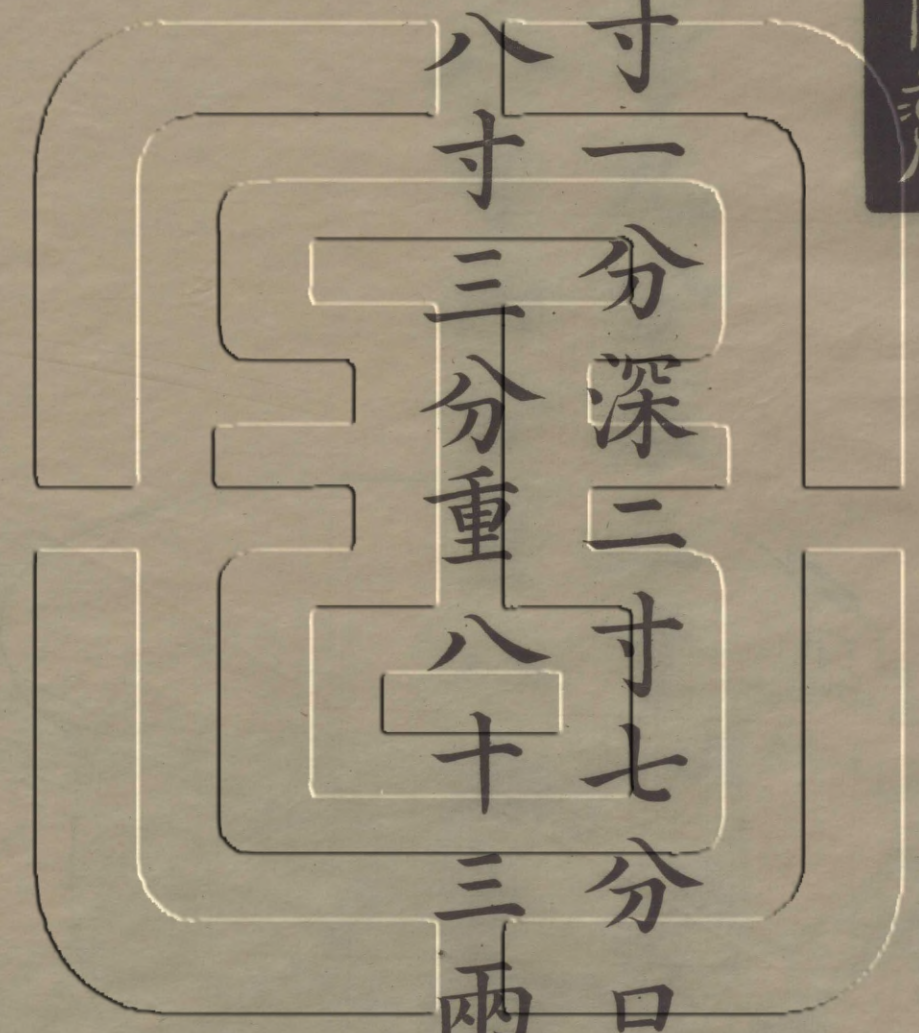 寸一分深二寸七分口
八寸三分重八十三兩